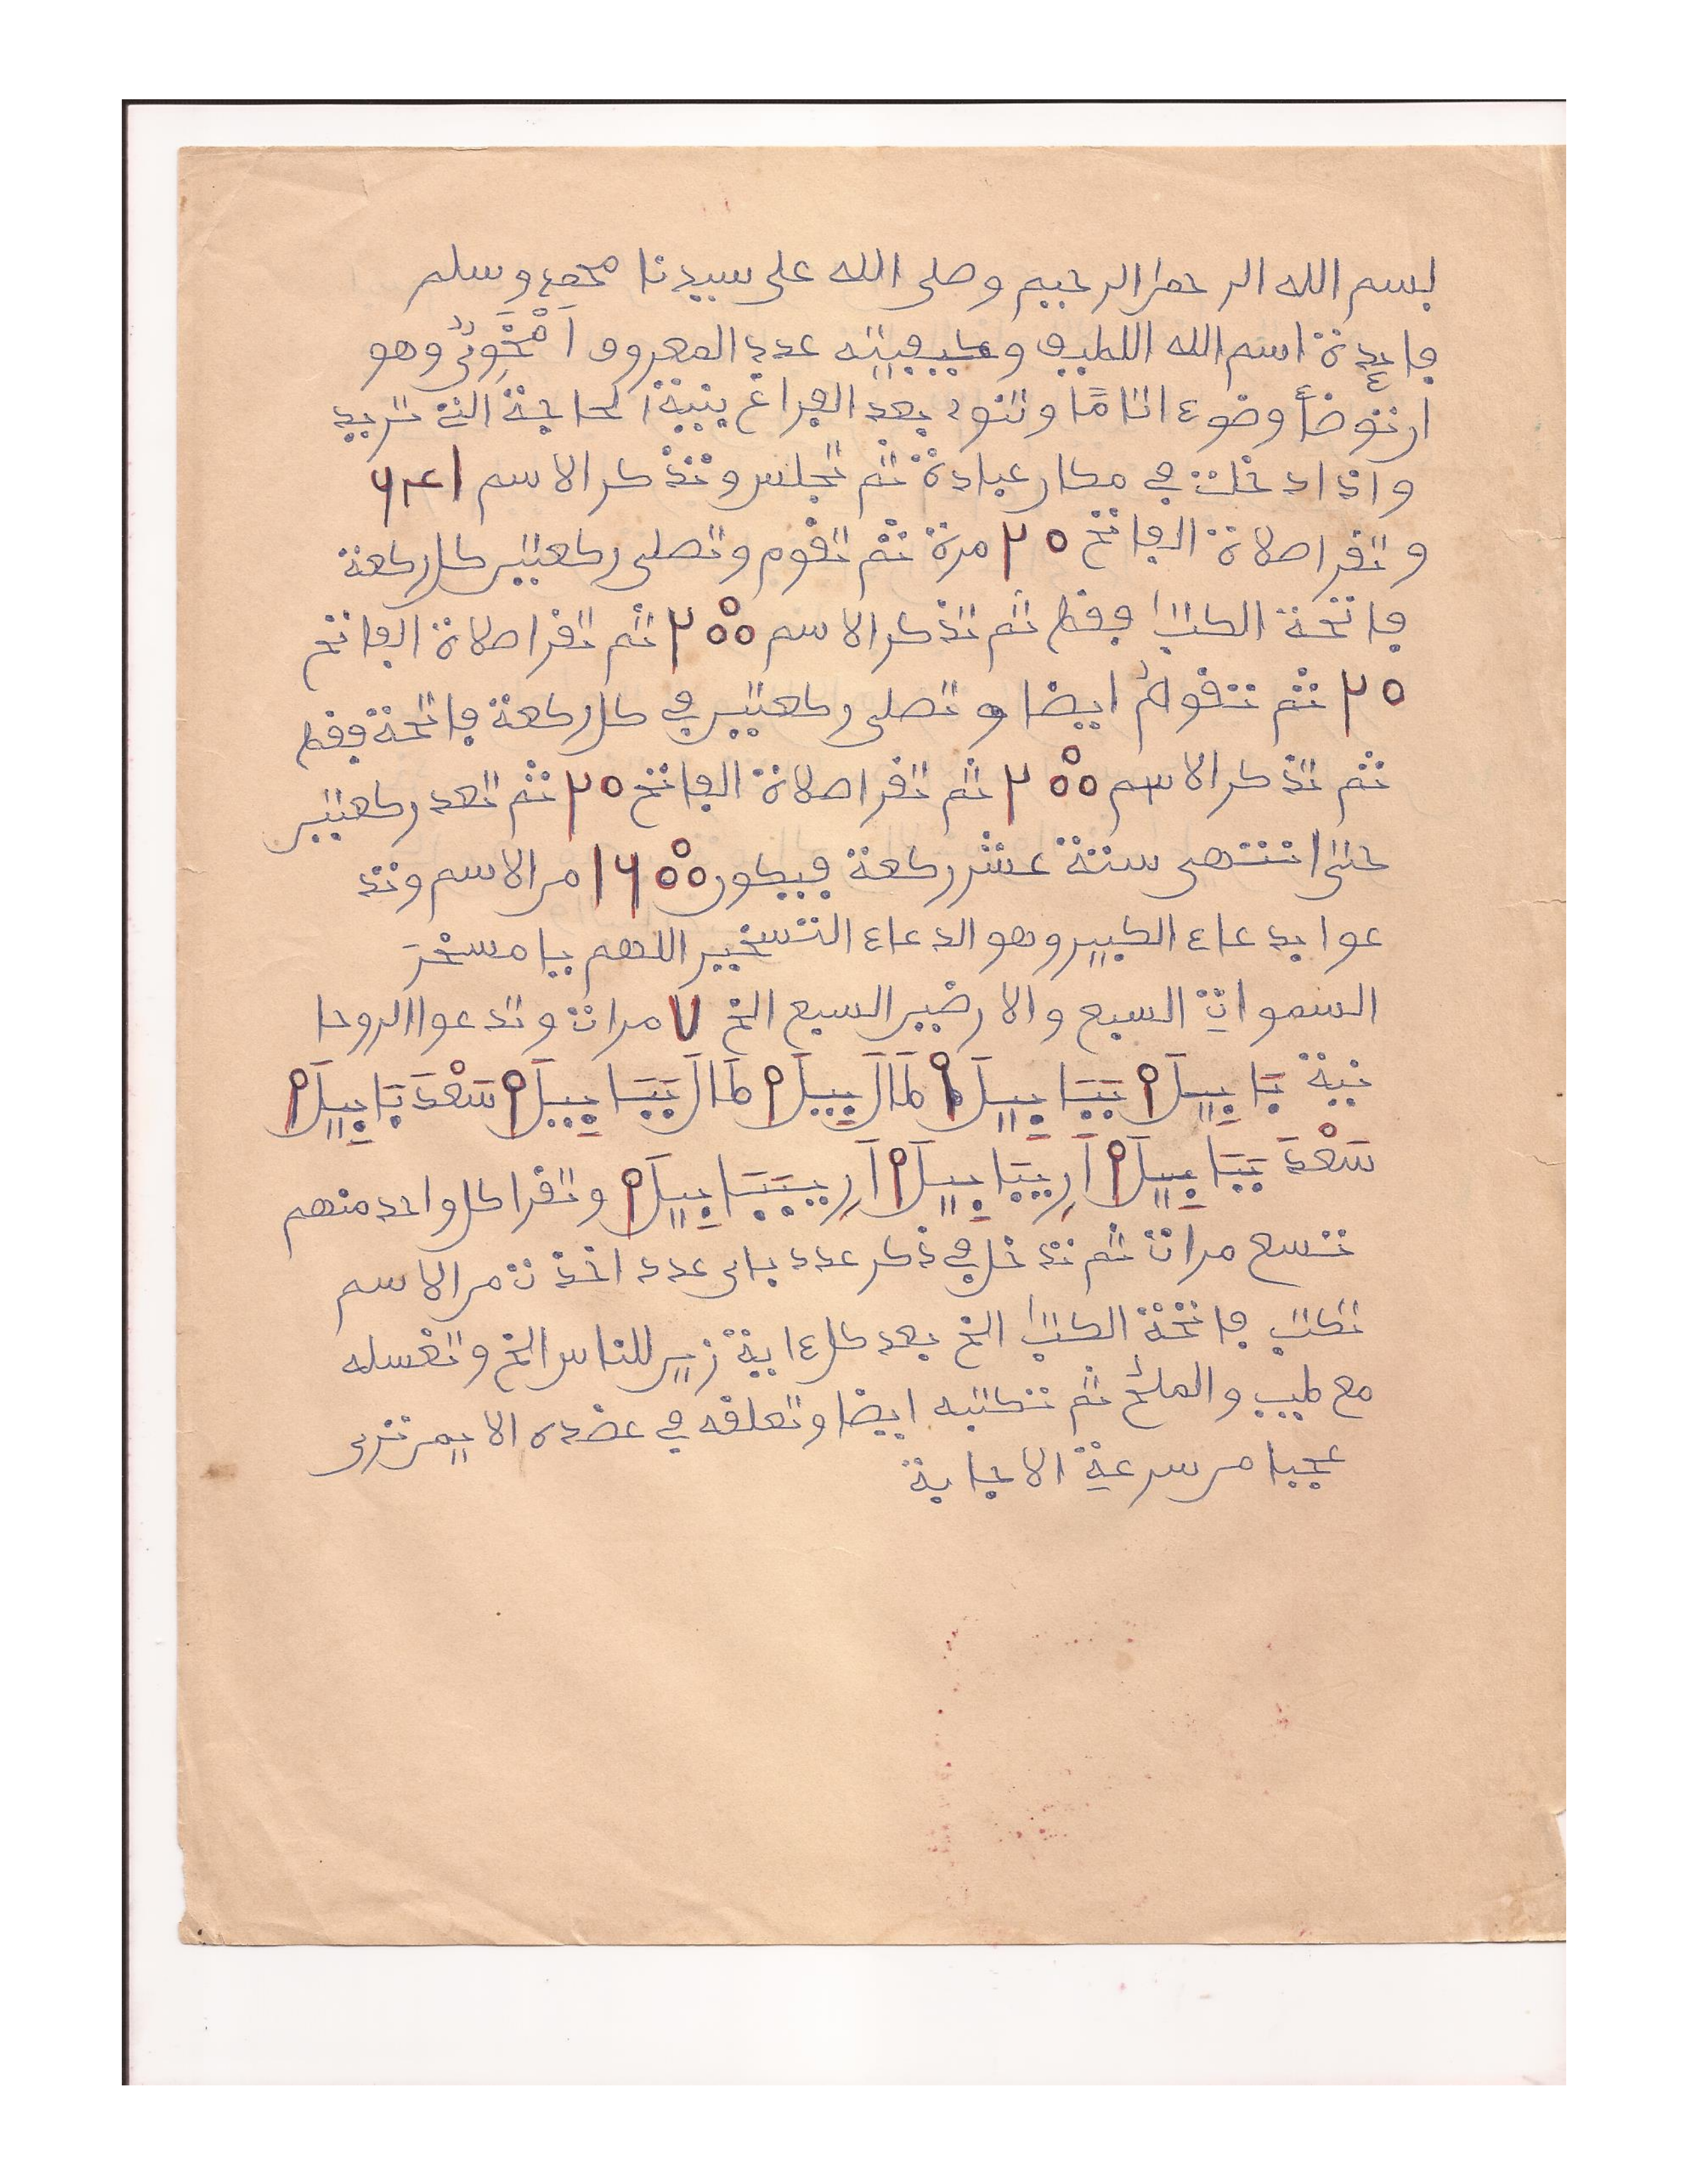 بسم الله الرحمن الرحيم وصلى الله على سيدنا محمد وسلم
فايدة اسم الله اللطيف وكيفيته عدد المعروف اَمْخَوِيُّ وهو
ان توضأ وضوءا تامًا وتنوى بعد الفراغ بنية الحاجة التى تريد
واذا دخلت في مكان عبادة ثم تجلس وتذكر الاسم ٦٤١
وتقرا صلاة الفاتح ٢٠ مرة ثم تقوم وتصلى ركعتين كل ركعة
فاتحة الكتٰب فقط ثم تذكر الاسم ٢٠٠ ثم تقرا صلاة الفاتح
٢٠ ثم تقوم ايضا و تصلى ركعتين في كل ركعة فاتحة فقط
ثم تذكر الاسم ٢٠٠ ثم تقرا صلاة الفاتح ٢٠ ثم تعد ركعتين
حتى انتهى ستة عشر ركعة فيكون ١٦٠٠ من الاسم وتد
عوا بدعاء الكبير وهو الدعاء التسخير اللهم يا مسخر
السموات السبع والارضين السبع الخ ٧ مرات وتدعوا الروحا
نية يَايِيلَ ٩ يَيَايِيلَ ٩ طَالَيِيلَ ٩ طَالَيَيَايِيلَ ٩ سَعْدَيَايِيلَ ٩
سَعْدَيَيَايِيلَ ٩ اَرِيَيَايِيلَ ٩ اَرِيَيَيَايِيلَ ٩ وتقرا كل واحد منهم
تسع مرات ثم تدخل في ذكر عدد باى عدد اخذت من الاسم
تكتب فاتحة الكتٰب الخ بعد كل ءاية زين للناس الخ وتغسله
مع طيب والملح ثم تكتبه ايضا وتعلقه في عضده الايمن ترى
عجبا من سرعة الاجابة